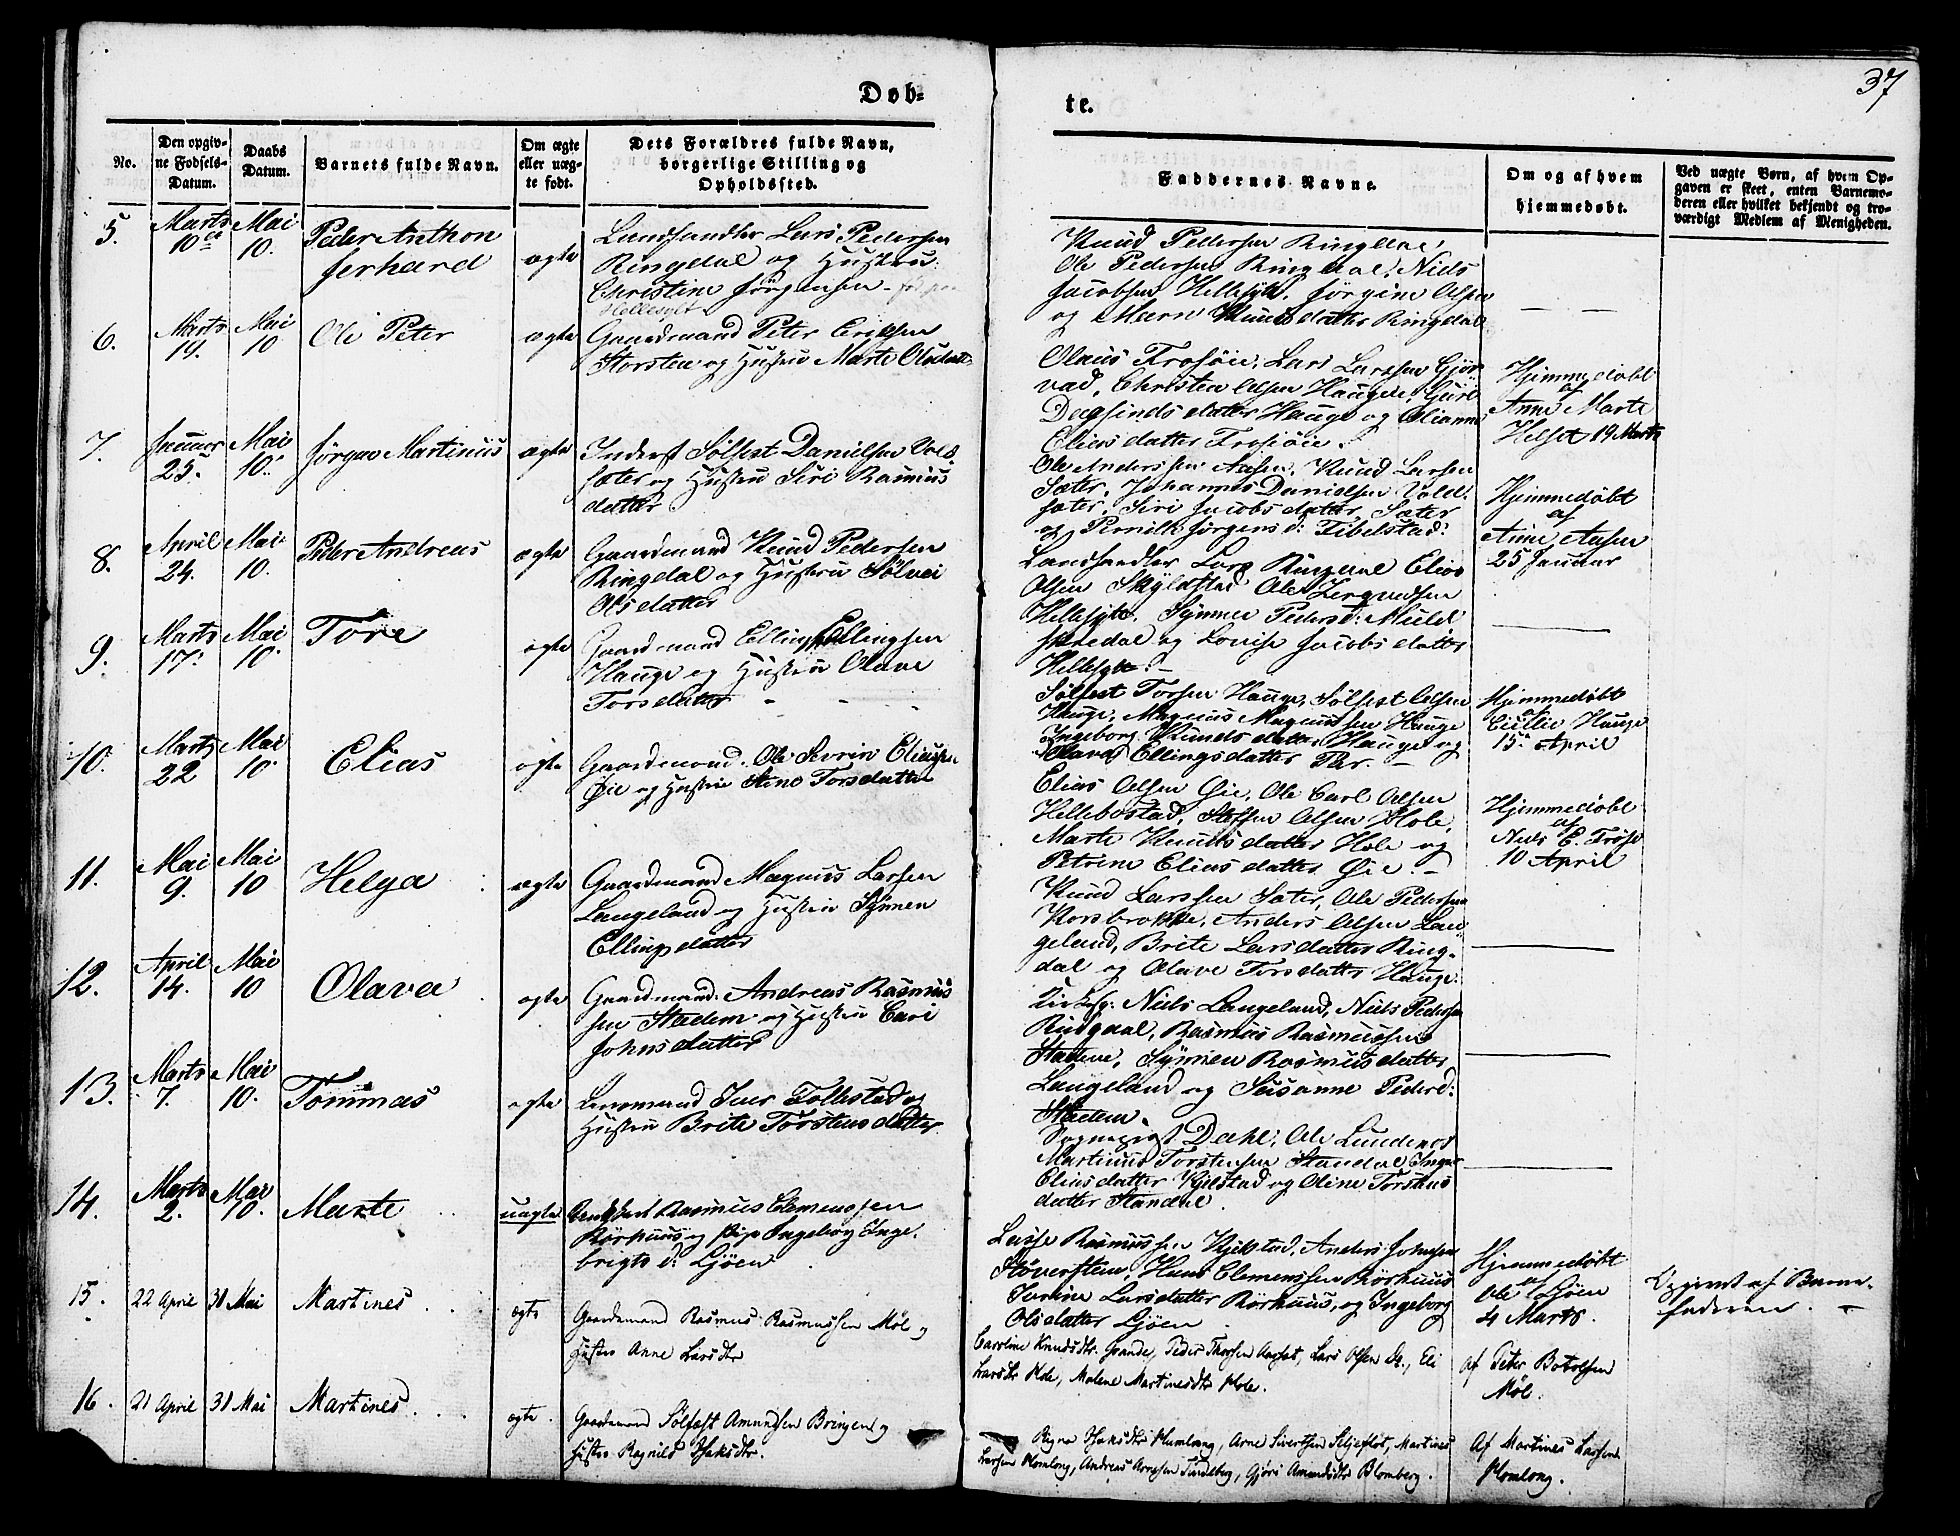 37
Døb-
te.
No.
Den opgiv-
ne Fødsels-
Datum.
Daabs
Datum.
Barnets fulde Navn.
Om ægte
eller uæg-
te født.
Dets Forældres fulde Navn,
borgerlige Stilling og
Opholdssted.
Faddernes Navne.
Om og af hvem
hjemmedøbt.
Ved uægte Børn, af hvem Op-
gaven er skeet, enten Barnemo-
deren eller hvilket bekjendt og tro-
værdigt Medlem af Menigheden.
5. Marts 10 Mai 10. Peder Anthon
Jerhard
ægte
Landhandler Lars Pedersen
Ringdal og Hustru
Christine Jörgensen
Hellesylt
Knud Pedersen Ringdal,
Ole Pedersen Ringdal, Niels
Jacobsen Hellesylt, Jörgine Olsen
og Maern Knudsdatter Ringdal
6. Marts 19. Mai 10 Ole Peter
ægte
Gaardmand Peter Eriksen
Storsten og Hustru Marte Olsdatt
Olaus Frosöie, Lars Larssen Gjör
vad, Christen Olsen Haugen, Guri
Dagfindsdatter Hauge og Olianne
Eliasdatter Frosöie.
Hjemmedøbt
af
Anne Marte
Helset 19 Marts
7. Januar 25. Mai 10. Jörgen Martinus
ægte
Inderst Sölfest Danielsen Vold
sæter og Hustru Siri Rasmus
datter
Ole Anderssen Aasen, Knud Larsen
Sæter, Johannes Danielsen Vold
sæter, Siri Jacobsdatter Sæter
og Pernille Jörgensd: Tibelstad:
Hjemmedøbt
af
Anne Aasen
25 Januar
8. April 24. Mai 10. Peder Andreas
ægte
Gaardmand Knud Pedersen
Ringdal og Hustru Sölvei
Olsdatter
Landhandler Lars Ringdal Elias
Olsen Skyldstad Ole
Hellesylt, Synnee Pedersd: Muld
skredal og Lovise Jacobsdatter
Hellesylt. -
9. Marts 17. Mai 10. Tore
ægte
Gaardmand Elling Ellingsen
Hauge og Hustru Olave
Torsdatter - - -
Sölfest Torsen Hauge, Sölfest Olsen
Hauge, Magnus Magnussen Hauge
Ingeborg Knudsdatter Hauge og
Olave Ellingsdatter
Hjemmedøbt
af
Cicilie Hauge
15. April
10. Marts 22 Mai 10. Elias
ægte
Gaardmand. Ole Severin Eliassen
Øie og Hustru Ane Torsdatter
Elias Olsen Øie, Ole Carl Olsen
Hellebostad, Steffen Olsen Hole,
Marte Knudsdatter Hole og
Petrine Eliasdatter Øie. -
Hjemmedøbt
af
Niels E. Frøse
10 April
11. Mai 9. Mai 10 Helga
ægte
Gaardmand Magnus Larsen
Langeland og Hustru Synnen
Ellingsdatter
Knud Larssen Sæter, Ole Pedersen
Korsbrække, Anders Olsen Lan
geland, Brite Larsdatter Ring-
dal og Olave Torsdatter Hauge.
12. April 14. Mai 10 Olava
ægte
Gaardmand: Andreas Rasmus
sen Stadem og Hustru Cari
Johnsdatter
Kirkesg: Niels Langeland, Niels Pedersen
Ringdal, Rasmus Rasmussen
Stadem, Synnen Rasmusdatter
Langeland og Susanne Pedersd:
Stadem.
13. Marts 7. Mai 10. Tommas
ægte
Lensmand Iver Tollestad og
Hustru Brite Torstensdatter
Sogneprest Dahl, Ole Lundenes
Martinus Torstensen Standal Inger
Eliasdatter Kjelstad og Oline Torstens
datter Standal.
14. Marts 2. Mai 10. Marte
uægte
Rasmus Clemenssen
Rörhuus og Pige Ingeborg Inge.
brigtsd: Ljöen
Lasse Rasmussen Kjelstad, Anders Johnsen
Støversten, Hans Clemenssen Rörhuus
Larsdatter Rörhuus, og Ingeborg
Olsdatter Ljöen.
Hjemmedøbt
af
Ole Ljöen
4 Marts.
Opgivet af Barne-
faderen. -
15. 22 April 31 Mai Martines
ægte
Gaardemand Rasmus Rasmussen Möl og
Hustru Anne Larsdtr
Caroline Knudsdtr. Grande, Peder Thorsen Aaset, Lars Olsen Do., Eli
Larsdtr Hole, Malene Martinesdtr Hole.
af Peter Botolfsen
Möl.
16. 21 April 31 Mai Martines
ægte.
Gaardemand Sölfæst Amundsen Bringen og
Hustru Ragnild Isaksdtr.
Ragna Isaksdtr Homlong, Arne Sivertsen Seljeflot, Martines
Larsen Homlong, Andreas Arnesen Indelberg, Gjöri Amundsdtr Blomberg.
Af Martines Larsen
Homlong.